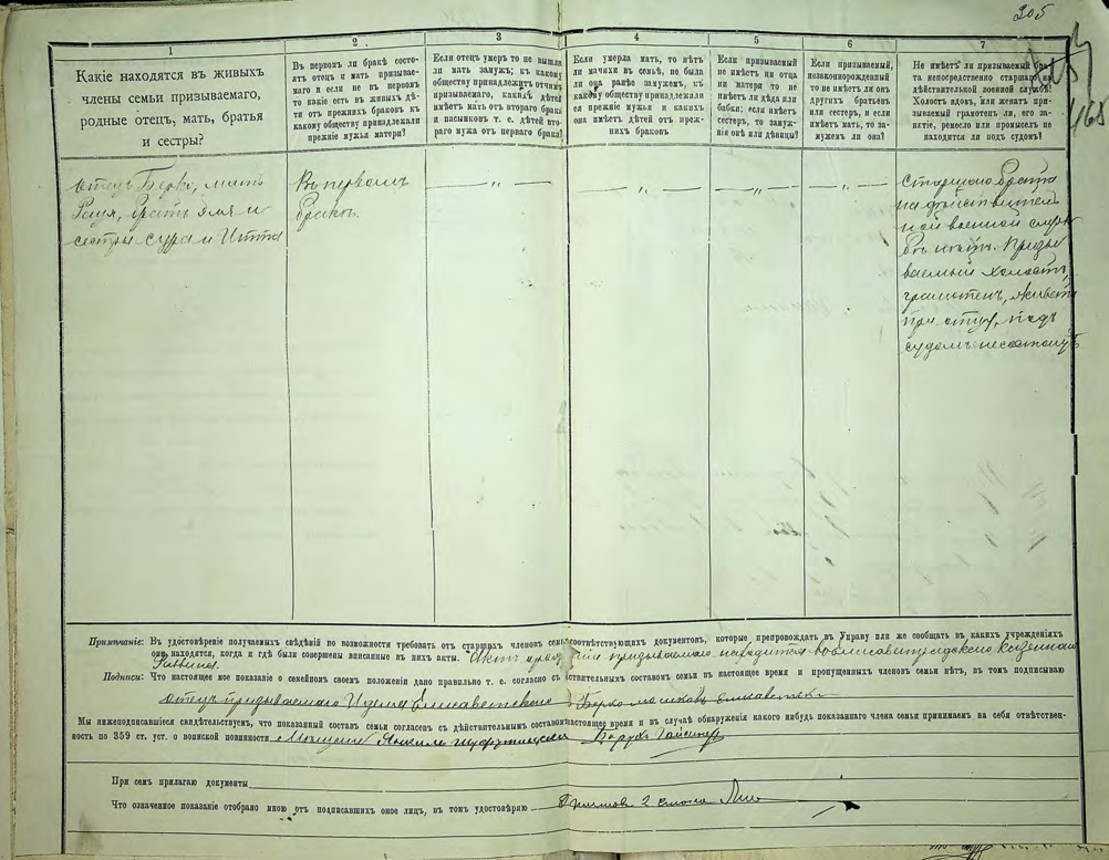 205
168
1
2.
3
4
5
6
7
Какіе находятся въ живыхъ
члены семьи призываемаго,
родные отецъ, мать, братья
и сестры?
Въ первомъ ли бракѣ состо-
ятъ отецъ и мать призывае-
маго и если не въ первомъ
то какіе есть въ живыхъ дѣ-
ти отъ прежнихъ браковъ къ
какому обществу принадлежали
прежніе мужья матери?
Если отецъ умеръ то не вышла
ли мать замужъ; къ какому
обществу принадлежитъ отчимъ
призываемаго, какихъ дѣтей
имѣетъ мать отъ втораго брака
и пасынковъ т. е. дѣтей вто-
раго мужа отъ перваго брака?
Если умерла мать, то нѣтъ
ли мачихи въ семьѣ, не была
ли она ранѣе замужемъ, къ
какому обществу принадлежали
ея прежніе мужья и какихъ
она имѣетъ дѣтей отъ преж-
нихъ браковъ
Если призываемый
не имѣетъ ни отца
ни матери то не
имѣетъ ли дѣда или
бабки; если имѣетъ
сестеръ, то замуж-
нія онѣ или дѣвицы?
Если призываемый,
незаконнорожденный
то не имѣетъ ли онъ
другихъ братьевъ
или сестеръ, и если
имѣетъ мать, то за-
мужемъ ли она?
Не имѣетъ ли призываемый бра-
та непосредственно старшаго на
дѣйствительной военной службѣ?
Холостъ вдовъ, или женатъ при-
зываемый грамотенъ ли, его за-
нятіе, ремесло или промыселъ не
находится ли подъ судомъ?
Отецъ Берко, мать
братъ Эля и
сестры Сура и Итта
Въ первомъ
бракѣ.
— „ —
— „ —
— „ —
— „ —
Старшаго брата
на дѣйствитель
ной военной служ
бѣ нѣтъ. Призы
ваемый холостъ,
грамотенъ, живетъ
при отцѣ, подъ
судомъ не состоитъ
Примѣчаніе: Въ удостовѣреніе получаемыхъ свѣдѣній по возможности требовать отъ старшихъ членовъ семьи соотвѣтствующихъ документовъ, которые препровождать въ Управу или же сообщать въ какихъ учрежденіяхъ
они находятся, когда и гдѣ были совершены вписанные въ нихъ акты. Актъ призываемаго находится во Елисаветградскаго Казеннаго
Раввина.
Подписи: Что настоящее мое показаніе о семейномъ своемъ положеніи дано правильно т. е. согласно съ дѣйствительнымъ составомъ семьи въ настоящее время и пропущенныхъ членовъ семьи нѣтъ, въ томъ подписываю
отецъ призываемаго Берко
Мы нижеподписавшіеся свидѣтельствуемъ, что показанный составъ семьи согласенъ съ дѣйствительнымъ составомъ настоящее время и въ случаѣ обнаруженія какого нибудь показаннаго члена семьи принимаемъ на себя отвѣтствен-
ность по 359 ст. уст. о воинской повинности Мѣщане Борухъ Гайсинеръ
При семъ прилагаю документы
Что означенное показаніе отобрано мною отъ подписавшихъ оное лицъ, въ томъ удостовѣряю Приставъ 2